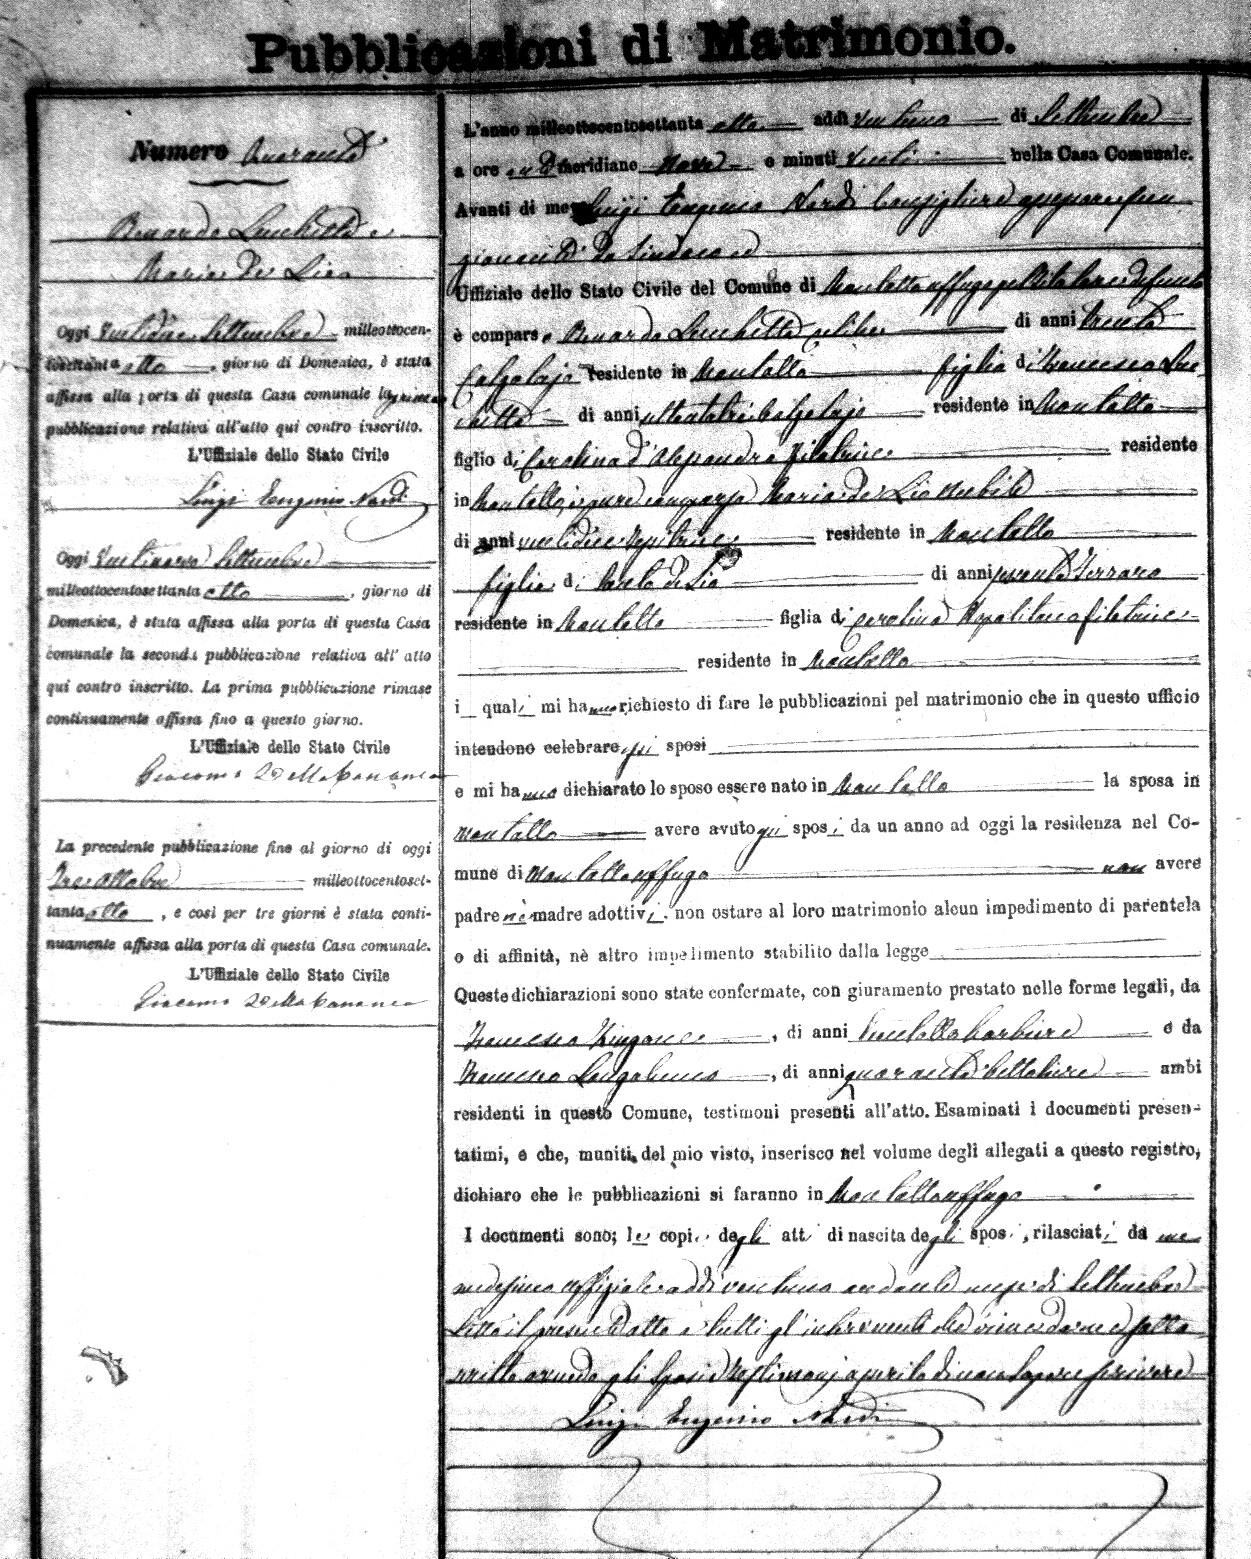 Pubblicazioni di Matrimonio.
Numero Quaranta
Benardo Lucchetta e
Maria De Lio
Oggi Ventidue Settembre milleottocen-
tosettanta otto, giorno di Domenica, è stata
affissa alla porta di questa Casa comunale la prima
pubblicazione relativa all'atto qui contro inscritto.
L'Uffiziale dello Stato Civile
Luigi Eugenio Nardi
Oggi Ventinove Settembre
milleottocentosettanta otto, giorno di
Domenica, è stata affissa alla porta di questa Casa
comunale la seconda pubblicazione relativa all'atto
qui contro inscritto. La prima pubblicazione rimase
continuamente affissa fino a questo giorno.
L'Uffiziale dello Stato Civile
Giacomo
La precedente pubblicazione fino al giorno di oggi
Tre Ottobre milleottocentoset-
tanta otto, e così per tre giorni è stata conti-
nuamente affissa alla porta di questa Casa comunale.
L'Uffiziale dello Stato Civile
Giacomo
L'anno milleottocentosettanta otto addì Ventuno di Settembre
a ore antimeridiane Nove e minuti Venti nella Casa Comunale.
Avanti di me Luigi Eugenio Nardi Consigliere assessore fun
zionante da Sindaco ed
Uffiziale dello Stato Civile del Comune di Montaltouffugo pel titolare defunto
è comparso Benardo Lucchetta celibe di anni Trenta
Calzolajo residente in Montalto figlio di Francesco Luc
chetta di anni settantatre Calzolajo residente in Montalto
figlio di Carolina d'Alessandro filatrice residente
in Montalto, è pure comparsa Maria De Lio nubile
di anni ventidue residente in Montalto
figlia di de Lio di anni sessanta Ferraro
residente in Montalto figlia di Carolina Napolitano filatrice
residente in Montalto
i quali mi hanno richiesto di fare le pubblicazioni pel matrimonio che in questo ufficio
intendono celebrare gli sposi
e mi hanno dichiarato lo sposo essere nato in Montalto la sposa in
Montalto avere avuto gli sposi da un anno ad oggi la residenza nel Co-
mune di Montaltouffugo non avere
padre nè madre adottivi, non ostare al loro matrimonio alcun impedimento di parentela
o di affinità, nè altro impedimento stabilito dalla legge
Queste dichiarazioni sono state confermate, con giuramento prestato nelle forme legali, da
Francesco, di anni barbiere e da
Francesco, di anni quaranta bettoliere ambi
residenti in questo Comune, testimoni presenti all'atto. Esaminati i documenti presen-
tatimi, e che, muniti del mio visto, inserisco nel volume degli allegati a questo registro,
dichiaro che le pubblicazioni si faranno in Montaltouffugo
I documenti sono; le copie degli atti di nascita degli sposi, rilasciati da me
medesimo uffiziale addì ventuno andante mese di Settembre
Letto il presente atto a tutti gl'intervenuti
gli Sposi e testimonj di non sapere scrivere
Luigi Eugenio Nardi